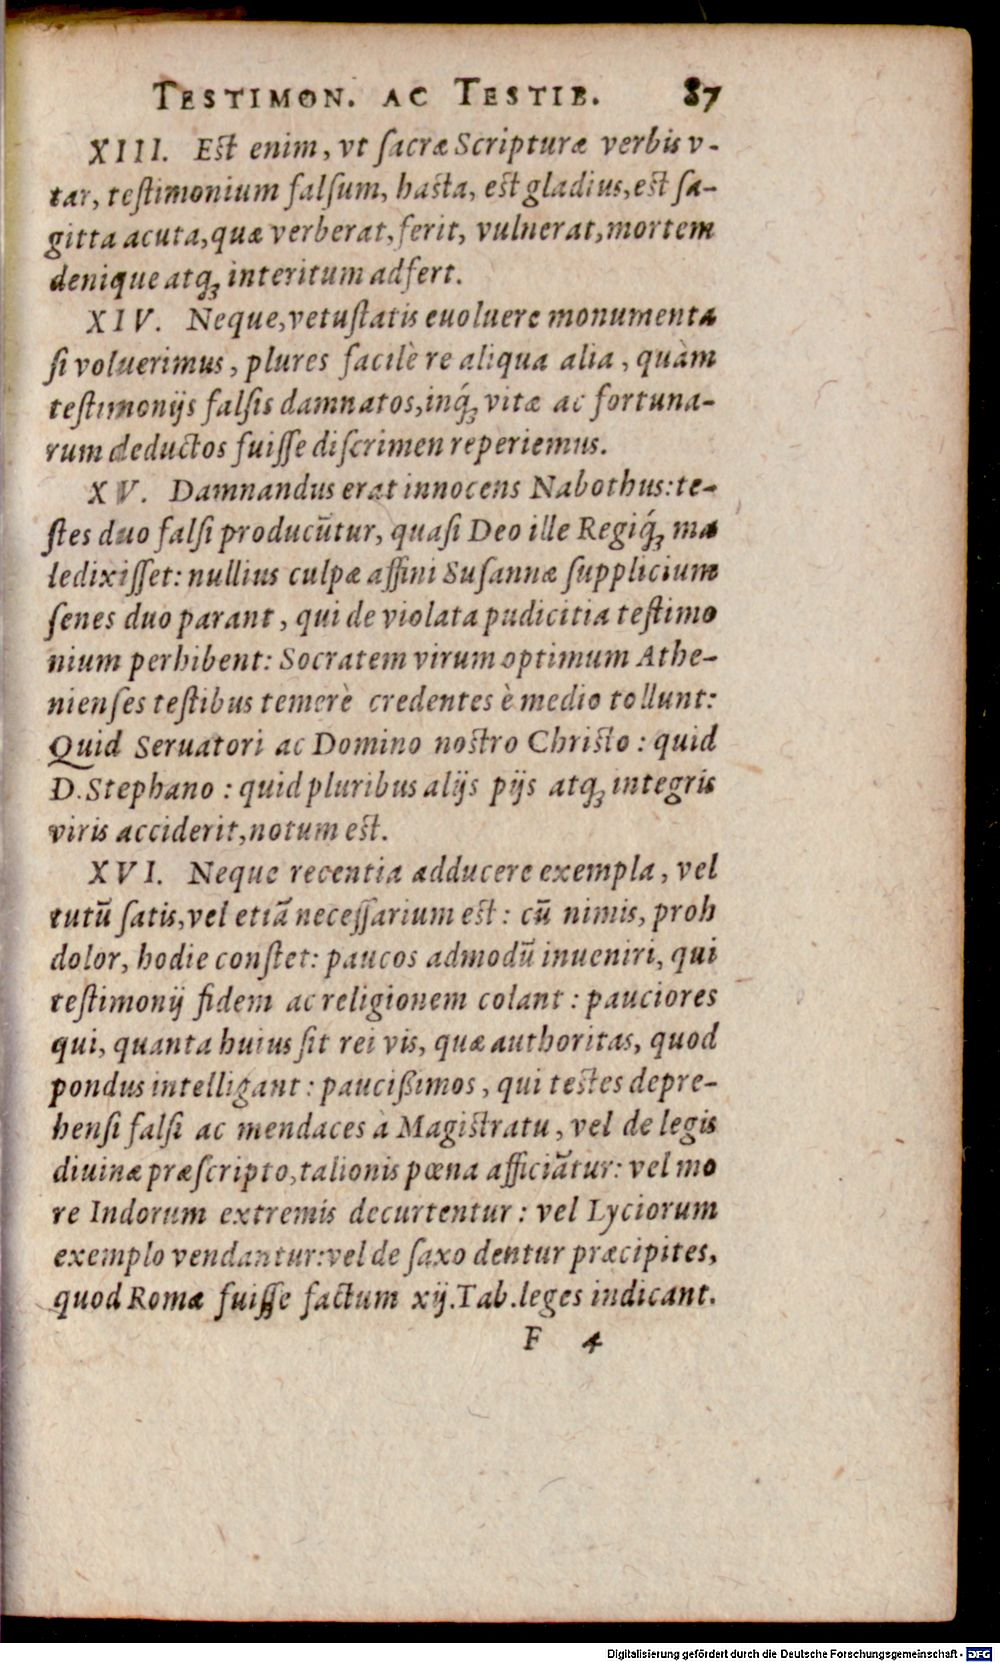 TESTIMON. AC TESTIB. 87
XIII. Est enim, vt sacræ Scripturæ verbis v-
tar, testimonium falsum, hasta, est gladius, est sa-
gitta acuta, quæ verberat, ferit, vulnerat, mortem
denique atq; interitum adfert.
XIV. Neque, vetustatis euoluere monumenta
si voluerimus, plures facilè re aliqua alia, quàm
testimonijs falsis damnatos, inq́; vitæ ac fortuna-
rum deductos fuisse discrimen reperiemus.
XV. Damnandus erat innocens Nabothus: te-
stes duo falsi producūtur, quasi Deo ille Regiq́; ma
ledixisset: nullius culpæ affini Susannæ supplicium
senes duo parant, qui de violata pudicitia testimo
nium perhibent: Socratem virum optimum Athe-
nienses testibus temerè credentes è medio tollunt:
Quid Seruatori ac Domino nostro Christo: quid
D. Stephano: quid pluribus alijs pijs atq; integris
viris acciderit, notum est.
XVI. Neque recentia adducere exempla, vel
tutū satis, vel etiā necessarium est: cū nimis, proh
dolor, hodie constet: paucos admodū inueniri, qui
testimonij fidem ac religionem colant: pauciores
qui, quanta huius sit rei vis, quæ authoritas, quod
pondus intelligant: paucißimos, qui testes depre-
hensi falsi ac mendaces à Magistratu, vel de legis
diuinæ præscripto, talionis pœna afficiātur: vel mo
re Indorum extremis decurtentur: vel Lyciorum
exemplo vendantur: vel de saxo dentur præcipites,
quod Romæ fuisse factum xij. Tab. leges indicant.
F 4
Digitalisierung gefördert durch die Deutsche Forschungsgemeinschaft - DFG